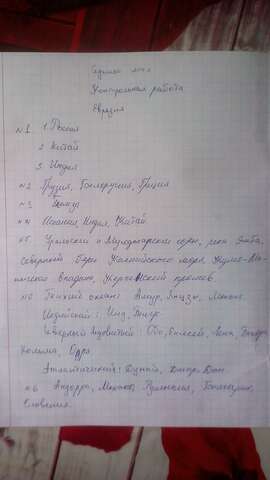 Контрольная работа
Евразия
№1 1 Россия
2 Китай
3 Индия
№2 Грузия, Белоруссия, Греция
№3
Индия, Китай.
№5 Уральские и Мугоджарские горы, река Эмба,
Северный берег Каспийского моря, Кумо-Ма-
нычская впадина, Керченский пролив.
Тихий океан: Амур, Янцзы, Меконг.
Индийский: Инд,
Северный Ледовитый: Обь, Енисей, Лена,
Колыма,
Атлантический: Дунай, Днепр, Дон.
№6 Андорра, Монако,
Словения.